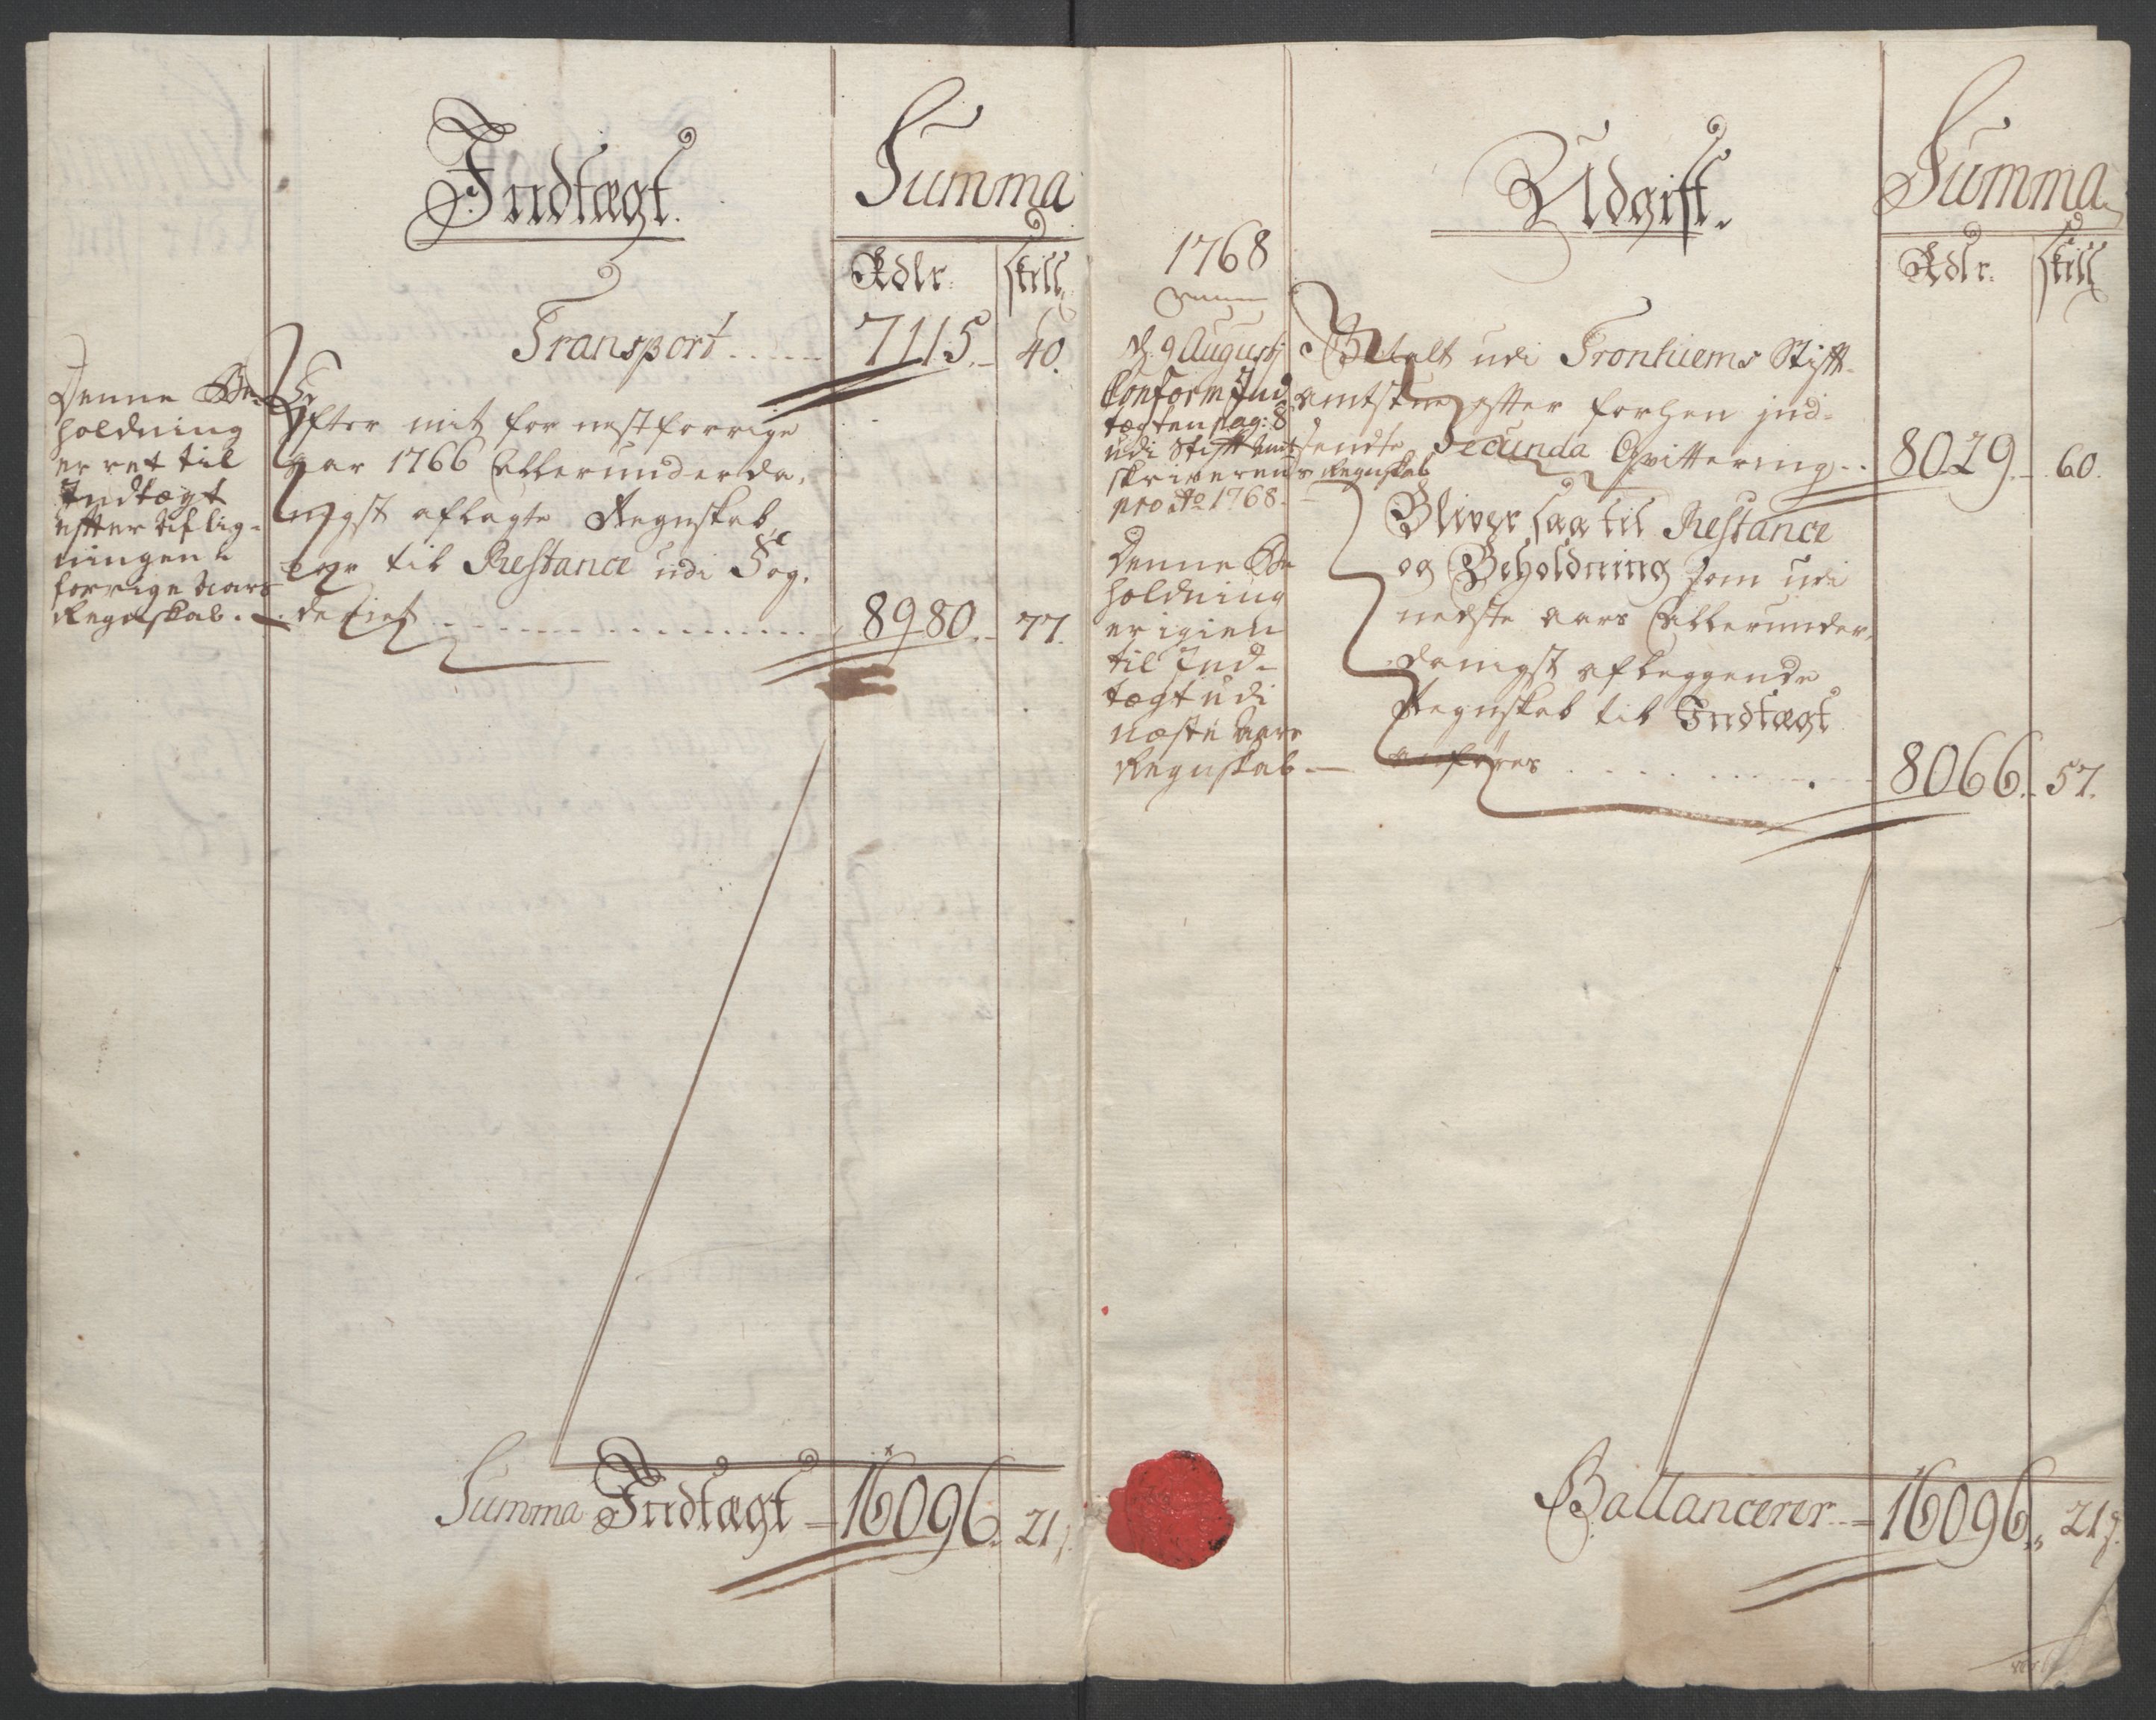 Indtægt.
Summa
Rdlr. Skill
Transport ..... 7115.- 40.
Denne Be-
holdning
er ret til
Indtægt
efter Liglig-
ningen i
forrige Aars
Regnskab.
Efter mit for nestforrige
Aar 1766 Allerunderda-
nigst aflagte Regnskab,
er til Restance udi Fog.
deriet ..... 8980.- 77.
Summa Indtægt = 16096. 21
Udgift.
Summa
Rdlr. Skill
1768
d. 9 Augustj
Conform Ind
tægten pag: 8
udi Stift Amt
skriverens Regnskab
pro Ao 1768.
Betalt udi Tronhiems Stift-
amtstue efter forhen ind-
sendte Secunda Qvittering.. 8029.- 60.
Denne Be
holdning
er igien
til Ind-
tægt udi
næste Aars
Regnskab.—
Bliver saa til Restance
og Beholdning som udi
nedste Aars Allerunder-
danigst aflæggende
Regnskab til Indtægt
anføres ..... 8066.- 57.
Ballancerer = 16096.. 21